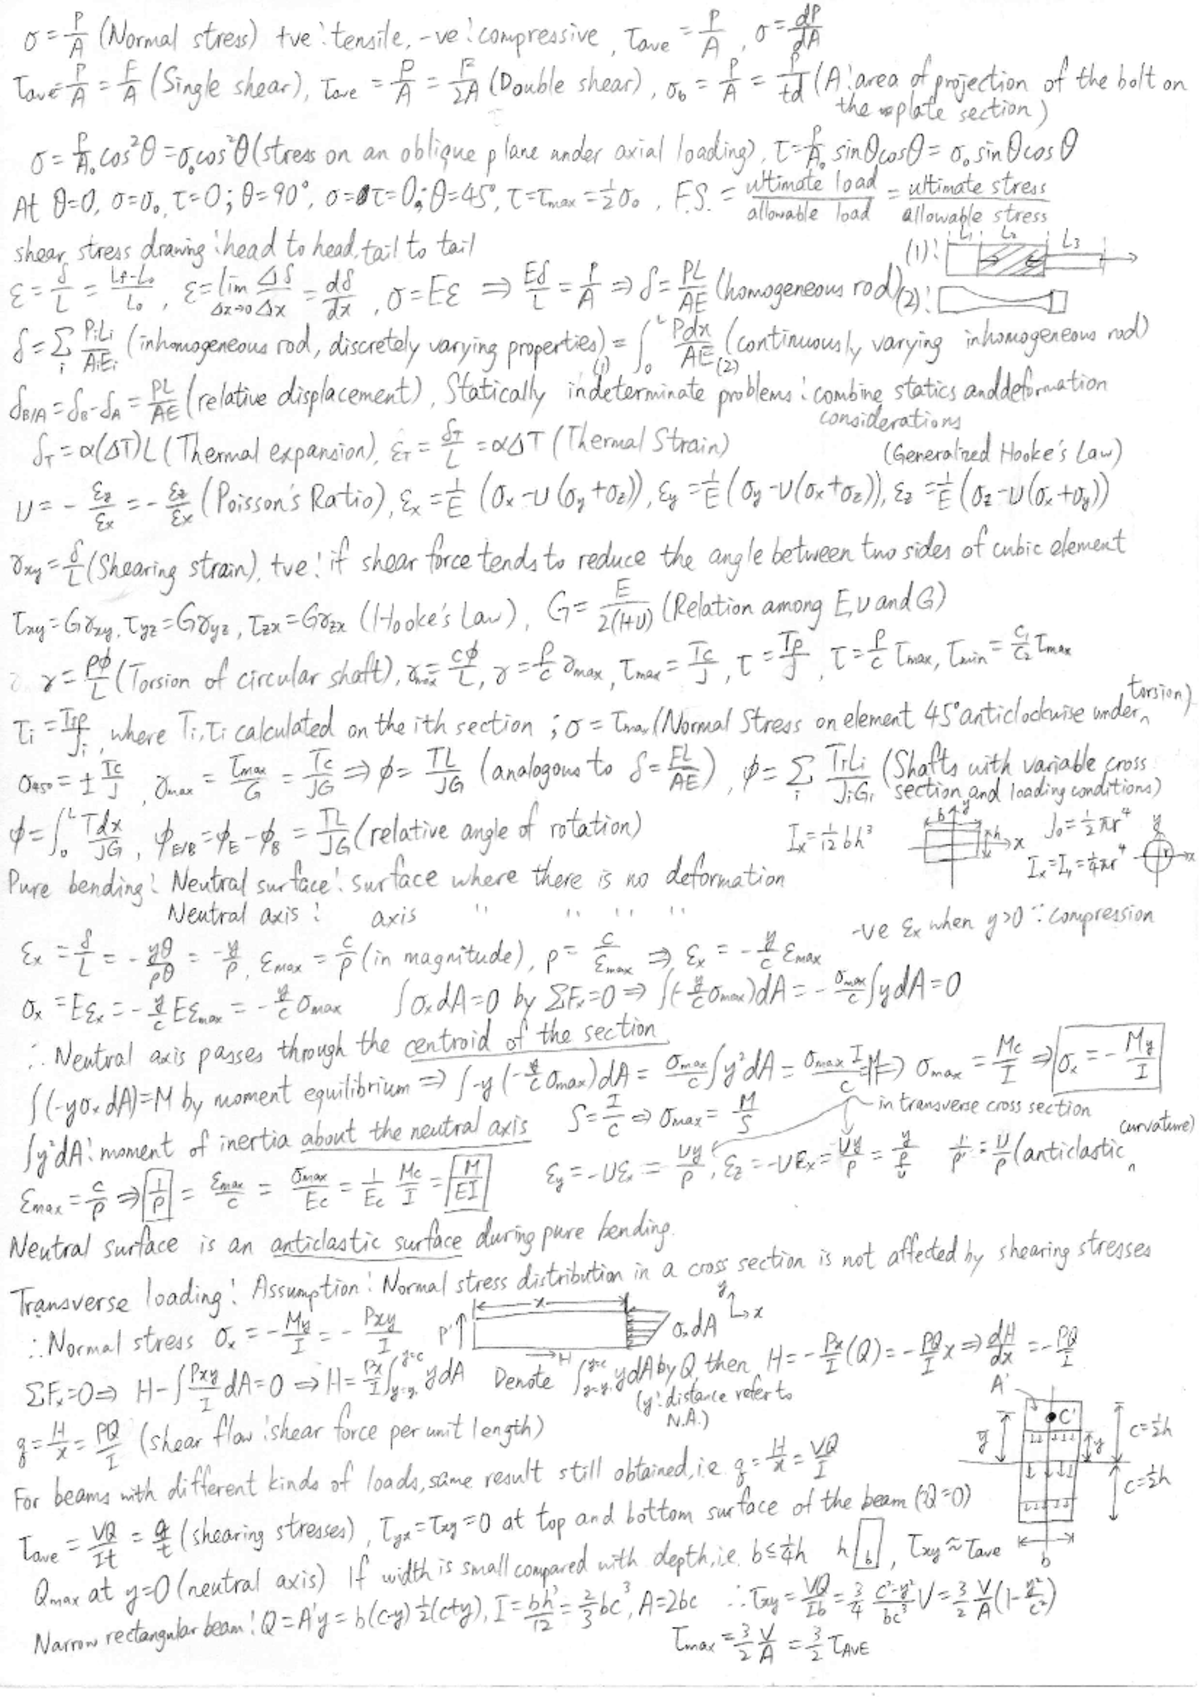 σ = P/A (Normal stress) +ve: tensile, -ve: compressive, τave = P/A, σ = dP/dA
τave = P/A = F/A (Single shear), τave = P/A = F/2A (Double shear), σb = P/A = P/td (A: area of projection of the bolt on
the plate section)
σ = P/A₀ cos²θ = σ₀cos²θ (stress on an oblique plane under axial loading), τ = P/A₀ sinθcosθ = σ₀ sinθcosθ
At θ=0, σ=σ₀, τ=0; θ=90°, σ=τ=0; θ=45°, τ=τmax=½σ₀, F.S. = ultimate load/allowable load = ultimate stress/allowable stress
shear stress drawing: head to head, tail to tail
(1): L₁ L₂ L₃
ε = δ/L = (Lf-L₀)/L₀, ε = lim Δx→0 Δδ/Δx = dδ/dx, σ=Eε ⇒ Eδ/L = P/A ⇒ δ = PL/AE (homogeneous rod) (2):
δ = Σi PiLi/AiEi (inhomogeneous rod, discretely varying properties) (1) = ∫₀ᴸ Pdx/AE (2) (continuously varying inhomogeneous rod)
δB/A = δB-δA = PL/AE (relative displacement), Statically indeterminate problems: combine statics and deformation
considerations
δT = α(ΔT)L (Thermal expansion), εT = δT/L = αΔT (Thermal Strain) (Generalized Hooke's Law)
ν = - εy/εx = - εz/εx (Poisson's Ratio), εx = 1/E (σx - ν(σy+σz)), εy = 1/E (σy - ν(σx+σz)), εz = 1/E (σz - ν(σx+σy))
γxy = δ/L (Shearing strain), +ve: if shear force tends to reduce the angle between two sides of cubic element
τxy = Gγxy, τyz = Gγyz, τzx = Gγzx (Hooke's Law), G = E/2(1+ν) (Relation among E, ν and G)
γ = ρφ/L (Torsion of circular shaft), γmax = cφ/L, γ = ρ/c γmax, τmax = Tc/J, τ = Tρ/J, τ = ρ/c τmax, τmin = c₁/c₂ τmax
τi = Tiρ/Ji, where Ti, τi calculated on the ith section; σ = τmax (Normal Stress on element 45° anticlockwise under torsion)
σ45° = ± Tc/J, γmax = τmax/G = Tc/JG ⇒ φ = TL/JG (analogous to δ = FL/AE), φ = Σi TiLi/JiGi (Shafts with variable cross
section and loading conditions)
φ = ∫₀ᴸ Tdx/JG, φE/B = φE - φB = TL/JG (relative angle of rotation) Ix = 1/12 bh³ b y h x J₀ = ½πr⁴ Ix = Iy = ¼πr⁴ y x
Pure bending: Neutral surface: surface where there is no deformation
Neutral axis: axis " " " " "
-ve εx when y>0 ∵ compression
εx = δ/L = - yθ/ρθ = - y/ρ, εmax = c/ρ (in magnitude), ρ = c/εmax ⇒ εx = - y/c εmax
σx = Eεx = - y/c Eεmax = - y/c σmax ∫σxdA=0 by ΣFx=0 ⇒ ∫(-y/c σmax)dA = - σmax/c ∫ydA = 0
∴ Neutral axis passes through the centroid of the section
∫(-yσxdA) = M by moment equilibrium ⇒ ∫-y(-y/c σmax)dA = σmax/c ∫y²dA = σmax I/c = M ⇒ σmax = Mc/I ⇒ σx = - My/I
∫y²dA: moment of inertia about the neutral axis S = I/c ⇒ σmax = M/S in transverse cross section
εmax = c/ρ ⇒ 1/ρ = εmax/c = σmax/Ec = 1/Ec Mc/I = M/EI εy = -νεx = νy/ρ, εz = -νεx = νy/ρ = y/(ρ/ν) 1/ρ' = ν/ρ (anticlastic curvature)
Neutral surface is an anticlastic surface during pure bending.
Transverse loading: Assumption: Normal stress distribution in a cross section is not affected by shearing stresses
∴ Normal stress σx = - My/I = - Pxy/I P' x H σxdA y x
ΣFx=0 ⇒ H - ∫Pxy/I dA = 0 ⇒ H = Px/I ∫y=y₁ y=c ydA Denote ∫y=y₁ y=c ydA by Q, then H = - Px/I (Q) = - PQ/I x ⇒ dH/dx = - PQ/I
(y: distance refer to
N.A.)
q = H/x = PQ/I (shear flow: shear force per unit length)
A' C' ȳ y c=½h c=½h b
For beams with different kinds of loads, same result still obtained, i.e. q = H/x = VQ/I
τave = VQ/It = q/t (shearing stresses), τyx = τxy = 0 at top and bottom surface of the beam (∵Q=0)
Qmax at y=0 (neutral axis) If width is small compared with depth, i.e. b≤¼h h b, τxy ≈ τave
Narrow rectangular beam: Q = A'ȳ = b(c-y)½(c+y), I = bh³/12 = 2/3 bc³, A=2bc ∴ τxy = VQ/Ib = 3/4 (c²-y²)/bc³ V = 3/2 V/A (1 - y²/c²)
τmax = 3/2 V/A = 3/2 τAVE